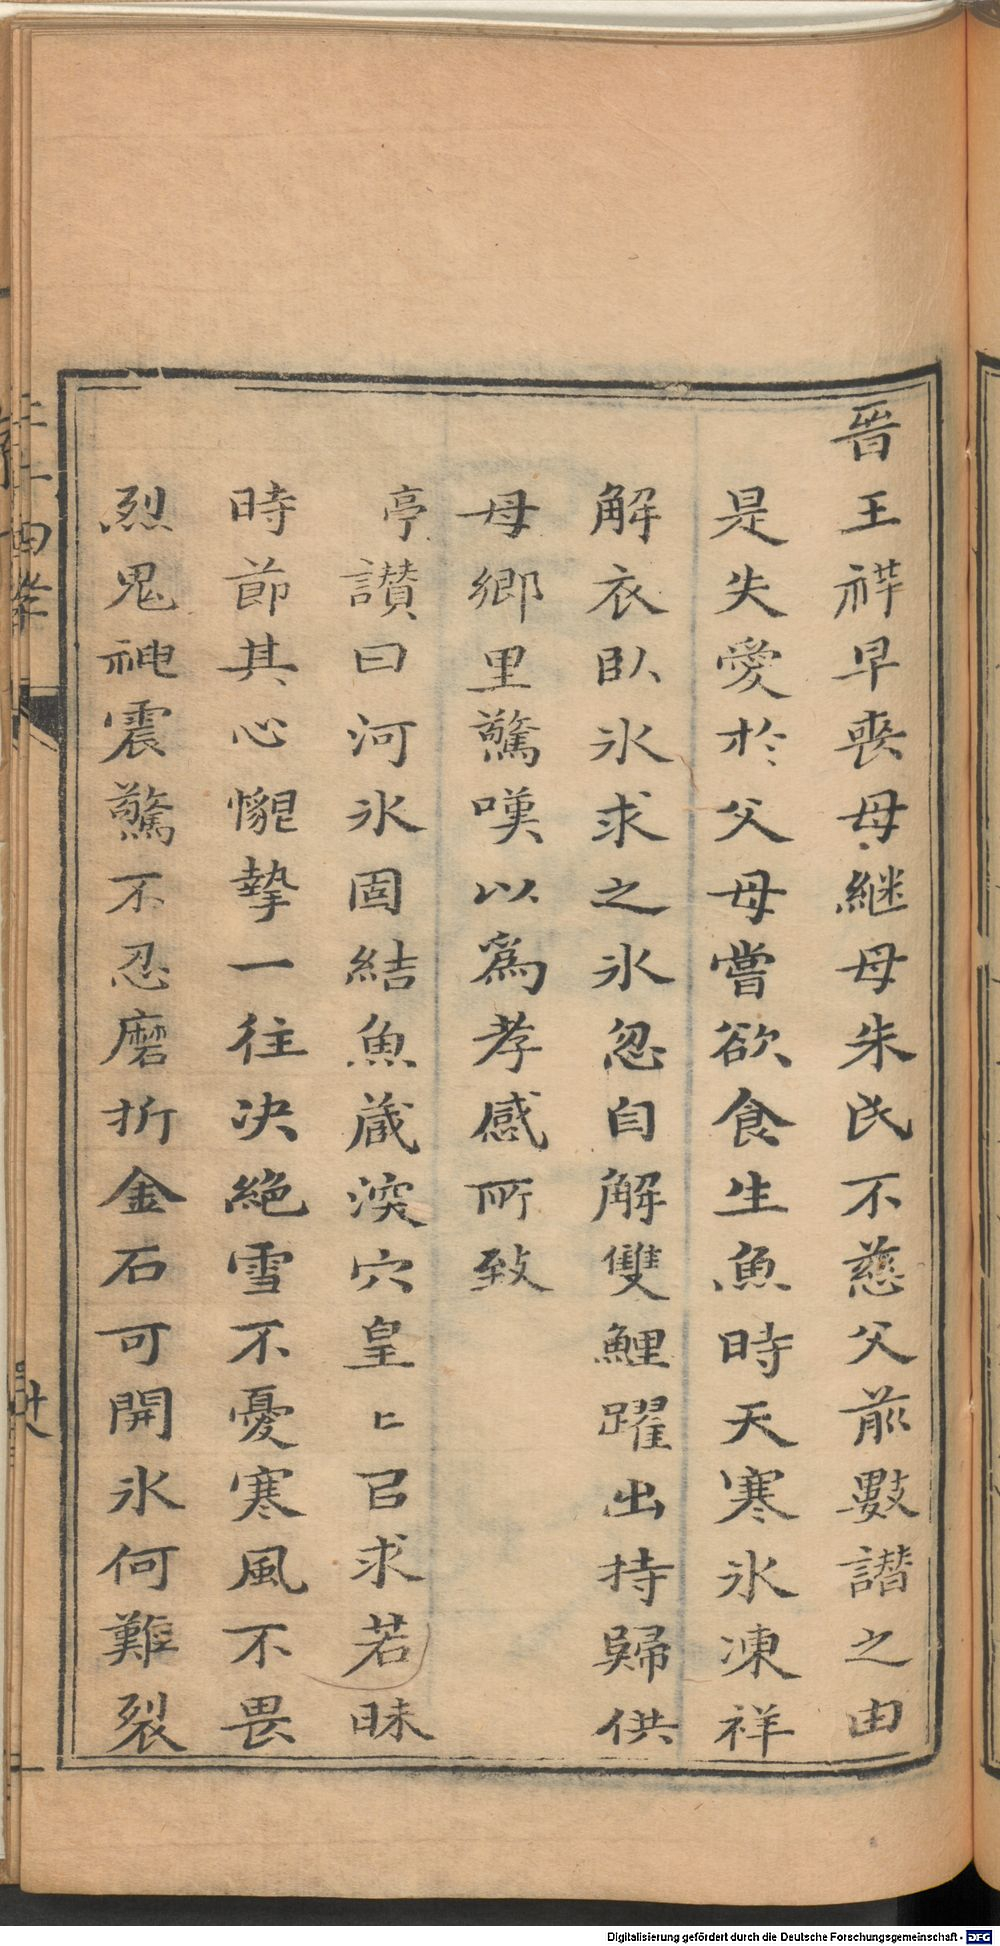 晉王祥早喪母繼母朱氏不慈父前數譖之由
是失愛於父母嘗欲食生魚時天寒氷凍祥
解衣臥氷求之氷忽自解雙鯉躍出持歸供
母鄉里驚嘆以爲孝感所致
亭讃曰河氷固結魚蔵深穴皇〻已求若昧
時節其心懇摯一往決絕雪不憂寒風不畏
烈鬼神震驚不忍磨折金石可開氷何難裂
二十四孝
Digitalisierung gefördert durch die Deutsche Forschungsgemeinschaft - DFG